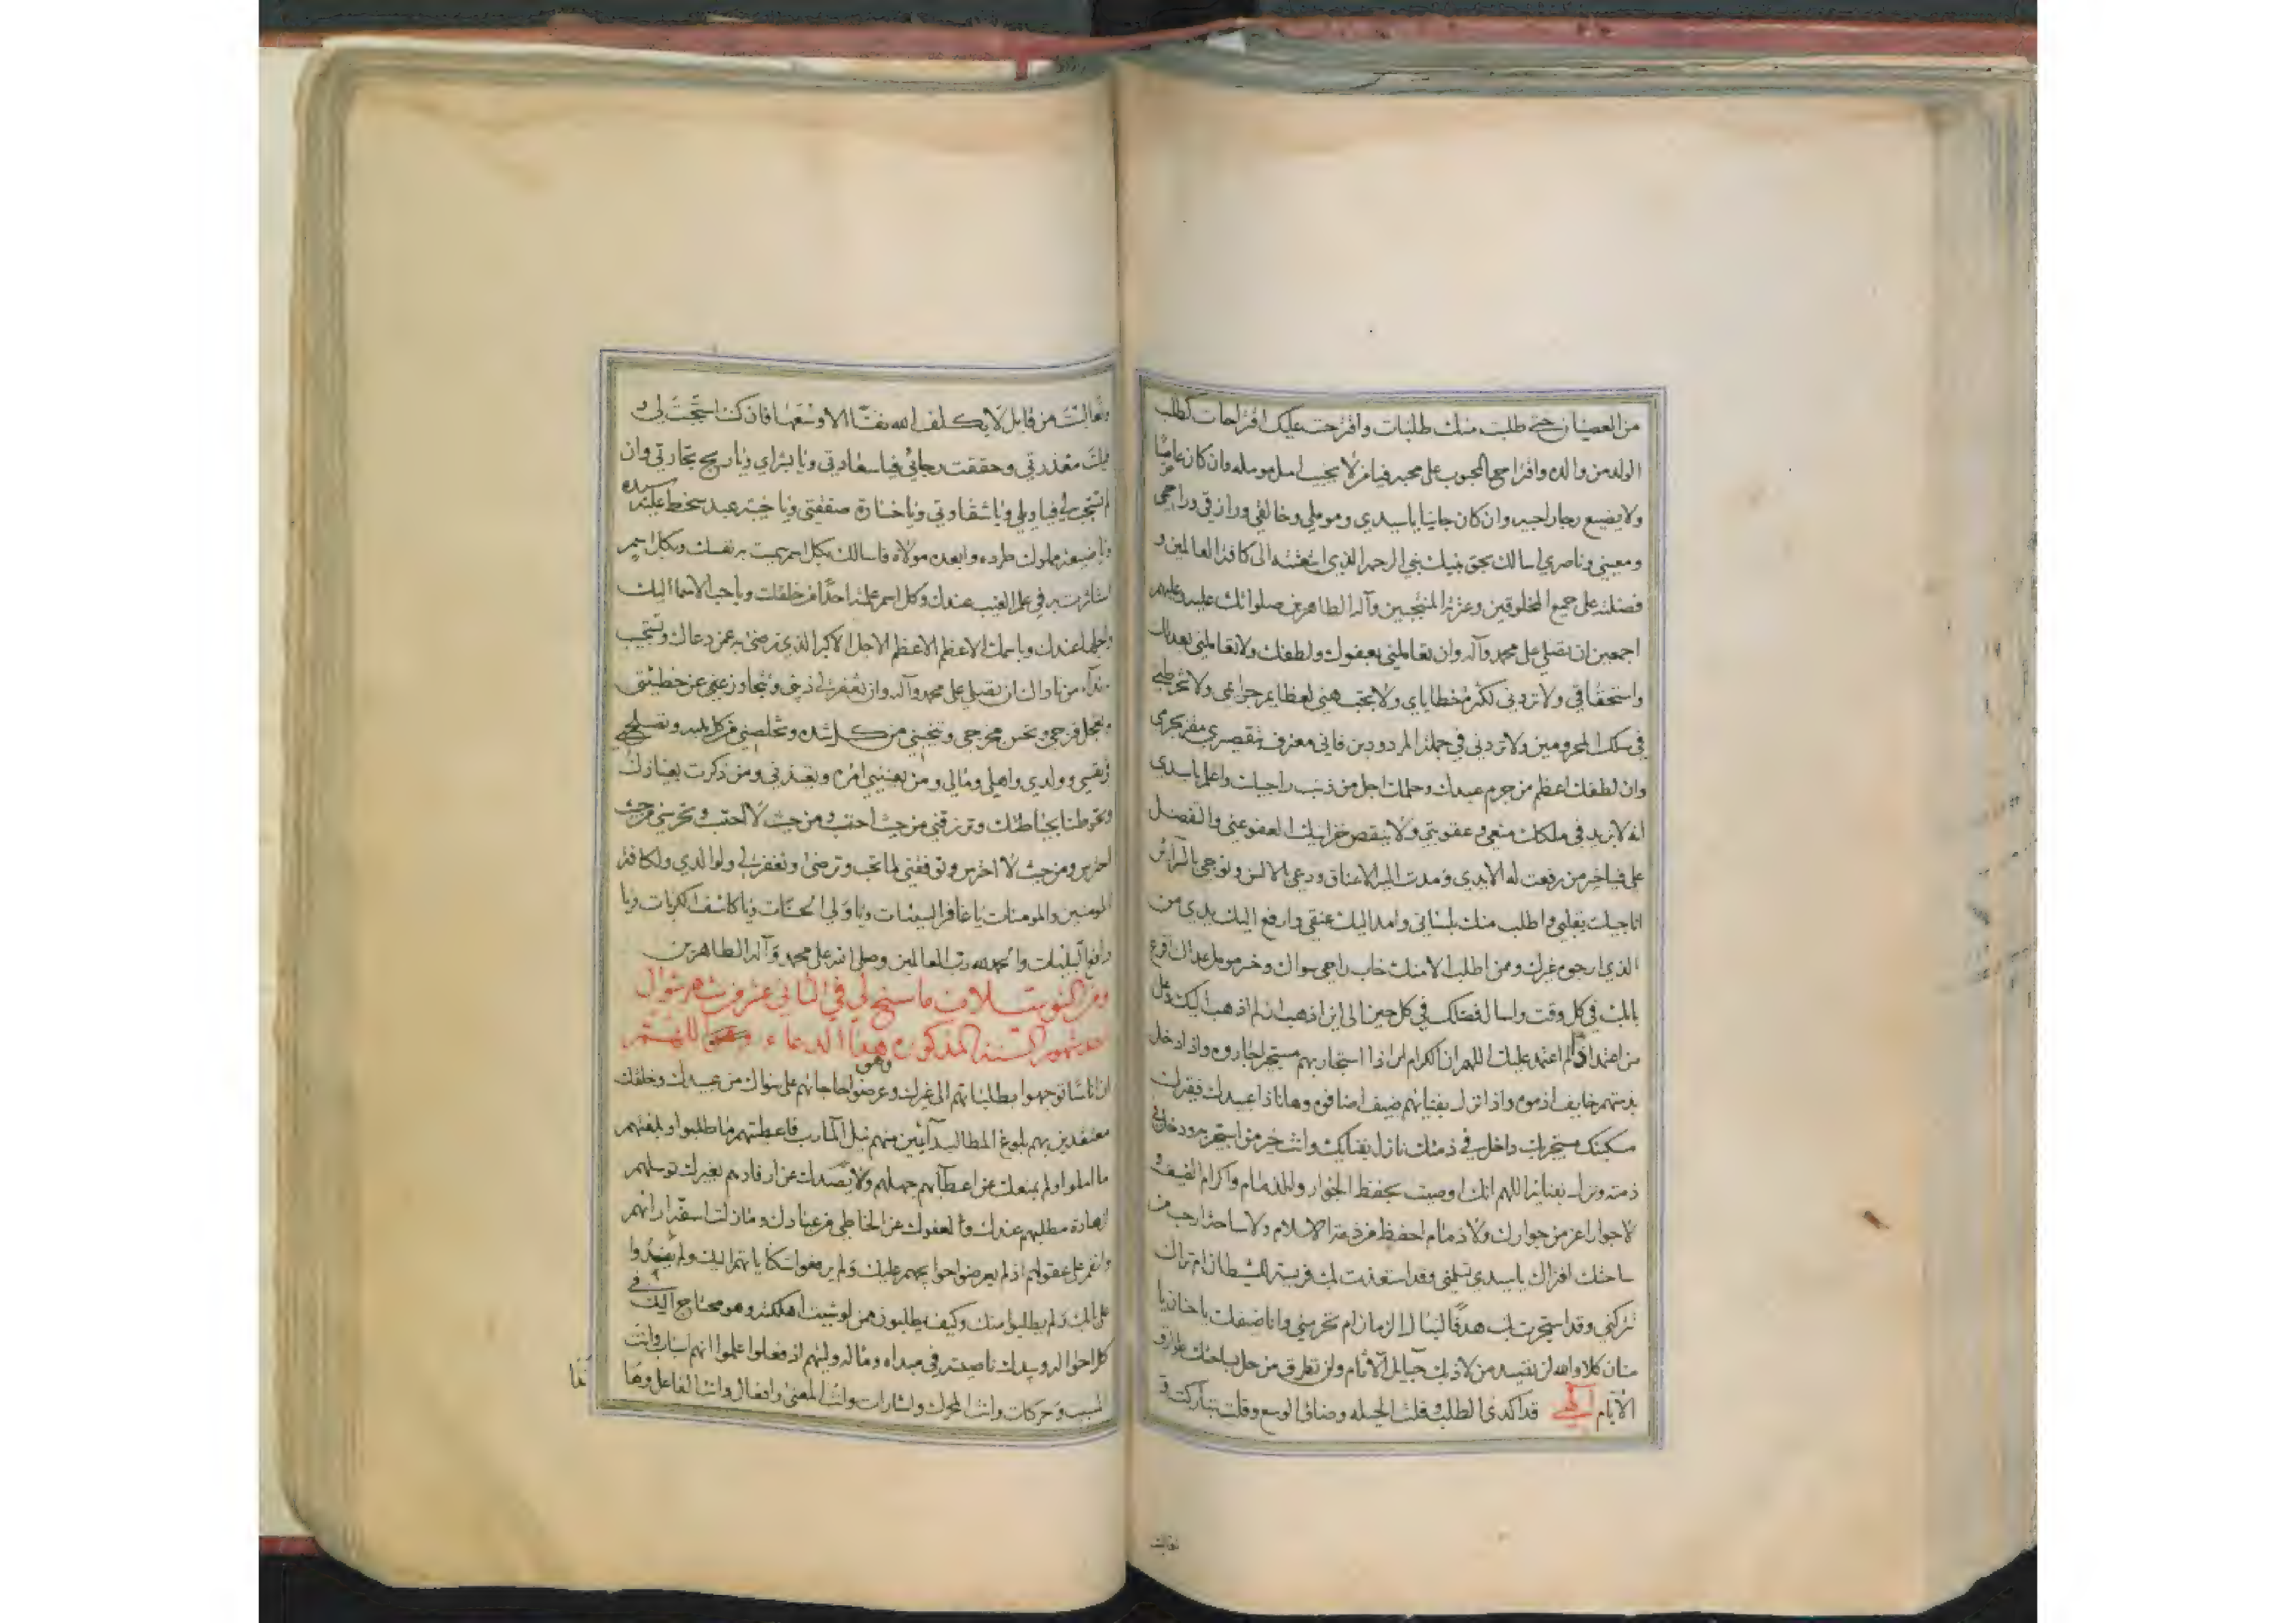 من العصيان حتى طلبت منك طلبات واقترحت عليك اقتراحات كطلب
الولد من والده واقتراح المحبوب على محبه فيا من لا يخيب امل مومله وان كان عاصيا
ولا يضيع رجا راجيه وان كان جانيا يا سيدي ومومّلي وخالقي ورازقي وراحمي
ومعيني وناصري اسالك بحق نبيك نبي الرحمه الذي ابتعثته الى كافة العالمين و
فضلته على جميع المخلوقين وعترته المنتجبين وآله الطاهرين صلواتك عليه وعليهم
اجمعين ان تصلي على محمد وآله وان تعاملني بعفوك ولطفك ولا تعاملني بعدلك
واستحقاقي ولا تردني لكثرة خطاياي ولا تجبهني لعظايم جرايمي ولا تخرطني
في سلك المحرومين ولا تردني في جملة المردودين فاني معترف بتقصيري مقر بجرمي
وان لطفك اعظم من جرم عبيدك وحلمك اجل من ذنب راجيك واعلم يا سيدي
انه لا يزيد في ملكك منعي وعقوبتي ولا ينقص خزاينك العفو عني والتفضل
علي فيا خير من رفعت له الايدي ومدت اليه الاعناق ودعي بالالسن ونوجي بالسرائر
اناجيك بقلبي واطلب منك بلساني وامد اليك عنقي وارفع اليك يدي من
الذي ارجوه غيرك وممن اطلب الا منك خاب راجي سواك وخسر مومل عداك اقرع
بابك في كل وقت واسال فضلك في كل حين الى اين اذهب ان لم اذهب اليك وعلى
من اعتمد اذا لم اعتمد عليك اللهم ان الكرام اذا استجار بهم مستجير اجاروه واذا دخل
بذمتهم خايف اذموه واذا نزل بفنائهم ضيف اضافوه وها انا ذا عبيدك فقيرك
مسكينك مستجير بك داخل في ذمتك نازل بفنايك وانت خير من استجير به ودخل في
ذمته ونزل بفنايه اللهم انك اوصيت بحفظ الجوار والذمام واكرام الضيف و
لا جوار اعز من جوارك ولا ذمام احفظ من ذمة الاسلام ولا ساحة ارحب من
ساحتك افتراك يا سيدي تسلمني وقد استعذت بك فريسة للشيطان ام تراك
تتركني وقد استجرت بك هدفا لنبال الزمان ام تحرمني وانا ضيفك يا حنان يا
منان كلا والله لن تقيد من لاذ بك حبايل الآثام ولن تطرق من حل بساحتك طوارق
الايام الهي قد اكدى الطلب وقلت الحيله وضاق الوسع وقلت تباركت و
تعاليت
وتعاليت من قايل لا يكلف الله نفسا الا وسعها فان كنت استجبت لي و
قبلت معذرتي وحققت رجائي فيا سعادتي ويا بشراي ويا ربح تجارتي وان
لم تستجب لي فيا ويلي ويا شقاوتي ويا خسارة صفقتي ويا خيبة عبد سخط عليه سيده
ويا ضيعة مملوك طرده وابعده مولاه فاسالك بكل اسم سميت به نفسك وبكل اسم
استاثرت به في علم الغيب عندك وكل اسم علمته احدا من خلقك وباحب الاسما اليك
واجلها عندك وباسمك الاعظم الاعظم الاجل الاكبر الذي ترضى به عمن دعاك وتستجيب
نداء من ناداك ان تصلي على محمد وآله وان تغفر لي ذنبي وتتجاوز عني عن خطيئتي
وتعجل فرجي وتحسن مخرجي وتنجيني من كل شدة وتخلصني من كل بليه وتصلح لي
نفسي وولدي واهلي ومالي ومن يعنيني امره
وتحوطنا بحياطتك وترزقني من حيث احتسب ومن حيث لا احتسب وتحرسني من حيث
احترس ومن حيث لا احترس وتوفقني لما تحب وترضى وتغفر لي ولوالدي ولكافة
المومنين والمومنات يا غافر السيئات ويا ولي الحسنات ويا كاشف الكربات ويا
دافع البليات والحمد لله رب العالمين وصلى الله على محمد وآله الطاهرين
ما سنح لي في الثاني عشر من شهر شوال
احد شهور السنة المذكورة هذا الدعاء وهو اللهم
ان اناسا توجهوا بطلباتهم الى غيرك وعرضوا حاجاتهم على سواك من عبيدك وخلقك
معتقدين بهم بلوغ المطالب آئبين منهم نيل المآرب فاعطيتهم ما طلبوا وبلغتهم
ما املوا ولم يمنعك عن اعطائهم جهلهم ولا يصدك عن ارفادهم بغيرك توسلهم
مطلبهم عندك
اذ لم يعرضوا حوايجهم عليك ولم يرفعوا شكاياتهم اليك ولم يفدوا
على بابك ولم يطلبوا منك وكيف يطلبون ممن لو شيت اهلكته وهو محتاج اليك في
كل احواله وبيدك ناصيته في مبداه ومآله وليتهم اذ فعلوا علموا انهم اسباب وانت
المسبب وحركات وانت المحرك واشارات وانت المعنى وافعال وانت الفاعل وها